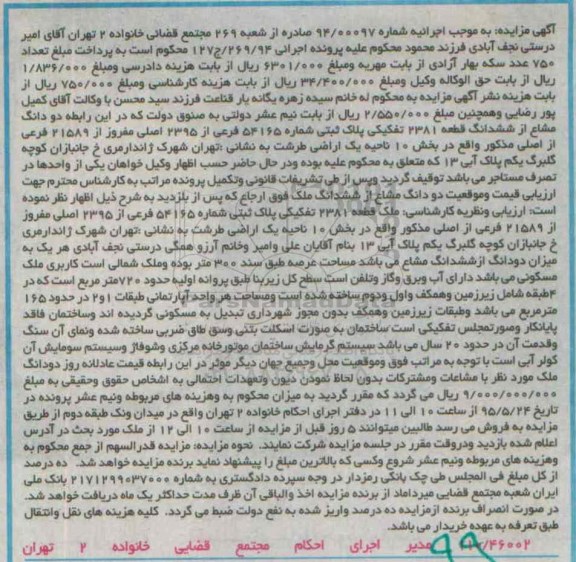 آگهی مزایده: به موجب اجرائیه شماره ۹۴/۰۰۰۹۷ صادره از شعبه ۲۶۹ مجتمع قضائی خانواده ۲ تهران آقای امیر
درستی نجف آبادی فرزند محمود محکوم علیه پرونده اجرائی ۲۶۹/۹۴/ج۱۲۷ محکوم است به پرداخت مبلغ تعداد
۷۵۰ عدد سکه بهار آزادی از بابت مهریه ومبلغ ۶۳۰۱/۰۰۰ ریال از بابت هزینه دادرسی ومبلغ ۱/۸۳۶/۰۰۰
ریال از بابت حق الوکاله وکیل ومبلغ ۳۴/۴۰۰/۰۰۰ ریال از بابت هزینه کارشناسی ومبلغ ۷۵۰/۰۰۰ ریال از
بابت هزینه نشر آگهی مزایده به محکوم له خانم سیده زهره یگانه یار قناعت فرزند سید محسن با وکالت آقای کمیل
پور رضایی وهمچنین مبلغ ۲/۵۵۰/۰۰۰ ریال از بابت نیم عشر دولتی به صنوق دولت که در این رابطه دو دانگ
مشاع از ششدانگ قطعه ۲۳۸۱ تفکیکی پلاک ثبتی شماره ۵۴۱۶۵ فرعی از ۲۳۹۵ اصلی مفروز از ۲۱۵۸۹ فرعی
از اصلی مذکور واقع در بخش ۱۰ ناحیه یک اراضی طرشت به نشانی :تهران شهرک ژاندارمری خ جانبازان کوچه
گلبرگ یکم پلاک آبی ۱۳ که متعلق به محکوم علیه بوده ودر حال حاضر حسب اظهار وکیل خواهان یکی از واحدها در
تصرف مستاجر می باشد توقیف گردید وپس از طی تشریفات قانونی وتکمیل پرونده مراتب به کارشناس محترم جهت
ارزیابی قیمت وموقعیت دو دانگ مشاع از ششدانگ ملک فوق ارجاع که پس از بازدید به شرح ذیل اظهار نظر نموده
است: ارزیابی ونظریه کارشناسی: ملک قطعه ۲۳۸۱ تفکیکی پلاک ثبتی شماره ۵۴۱۶۵ فرعی از ۲۳۹۵ اصلی مفروز
از ۲۱۵۸۹ فرعی از اصلی مذکور واقع در بخش ۱۰ ناحیه یک اراضی طرشت به نشانی :تهران شهرک ژاندارمری
خ جانبازان کوچه گلبرگ یکم پلاک آبی ۱۳ بنام آقایان علی وامیر وخانم آرزو همگی درستی نجف آبادی هر یک به
میزان دودانگ ازششدانگ مشاع می باشد مساحت عرصه طبق سند ۳۰۰ متر بوده وملک شمالی است کاربری ملک
مسکونی می باشد دارای آب وبرق وگاز وتلفن است سطح کل زیربنا طبق پروانه اولیه حدود ۷۲۰متر مربع است که در
۴طبقه شامل زیرزمین وهمکف واول ودوم ساخته شده است ومساحت هر واحد آپارتمانی طبقات ۱و۲ در حدود ۱۶۵
مترمربع می باشد وطبقات زیرزمین وهمکف بدون مجوز شهرداری تبدیل به مسکونی گردیده اند وساختمان فاقد
پایانکار وصورتمجلس تفکیکی است ساختمان به صورت اسکلت بتنی وسق طاق ضربی ساخته شده ونمای آن سنگ
وقدمت آن در حدود ۲۰ سال می باشد سیستم گرمایش ساختمان موتورخانه مرکزی وشوفاژ وسیستم سومایش آن
کولر آبی است با توجه به مراتب فوق وموقعیت محل وجمیع جهان دیگر موثر در این رابطه قیمت عادلانه روز دودانگ
ملک مورد نظر با مشاعات ومشترکات بدون لحاظ نمودن دیون وتعهدات احتمالی به اشخاص حقوق وحقیقی به مبلغ
۹/۰۰۰/۰۰۰/۰۰۰ ریال می گردد که مقرر گردید به میزان محکوم به وهزینه های مربوطه ونیم عشر پرونده در
تاریخ ۹۵/۵/۲۴ از ساعت ۱۰ الی ۱۱ در دفتر اجرای احکام خانواده ۲ تهران واقع در میدان ونک طبقه دوم از طریق
مزایده به فروش می رسد طالبین میتوانند ۵ روز قبل از مزایده از ساعت ۱۰ الی ۱۲ از ملک مورد بحث در آدرس
اعلام شده بازدید ودروقت مقرر در جلسه مزایده شرکت نمایند. نحوه مزایده: مزایده قدرالسهم از جمع محکوم به
وهزینه های مربوطه ونیم عشر شروع وکسی که بالاترین مبلغ را پیشنهاد نماید برنده مزایده خواهد شد. ده درصد
از کل مبلغ فی المجلس طی چک بانکی رمزدار در وجه سپرده دادگستری به شماره ۲۱۷۱۲۹۹۰۳۷۰۰۰ بانک ملی
ایران شعبه مجتمع قضایی میرداماد از برنده مزایده اخذ والباقی آن ظرف مدت حداکثر یک ماه دریافت خواهد شد.
در صورت انصراف برنده ازمزایده ده درصد واریز شده به نفع دولت ضبط می گردد. کلیه هزینه های نقل وانتقال
طبق تعرفه به عهده خریدار می باشد.
۴۶۰۰۲/ مدیر اجرای احکام مجتمع قضایی خانواده ۲ تهران
۹۹